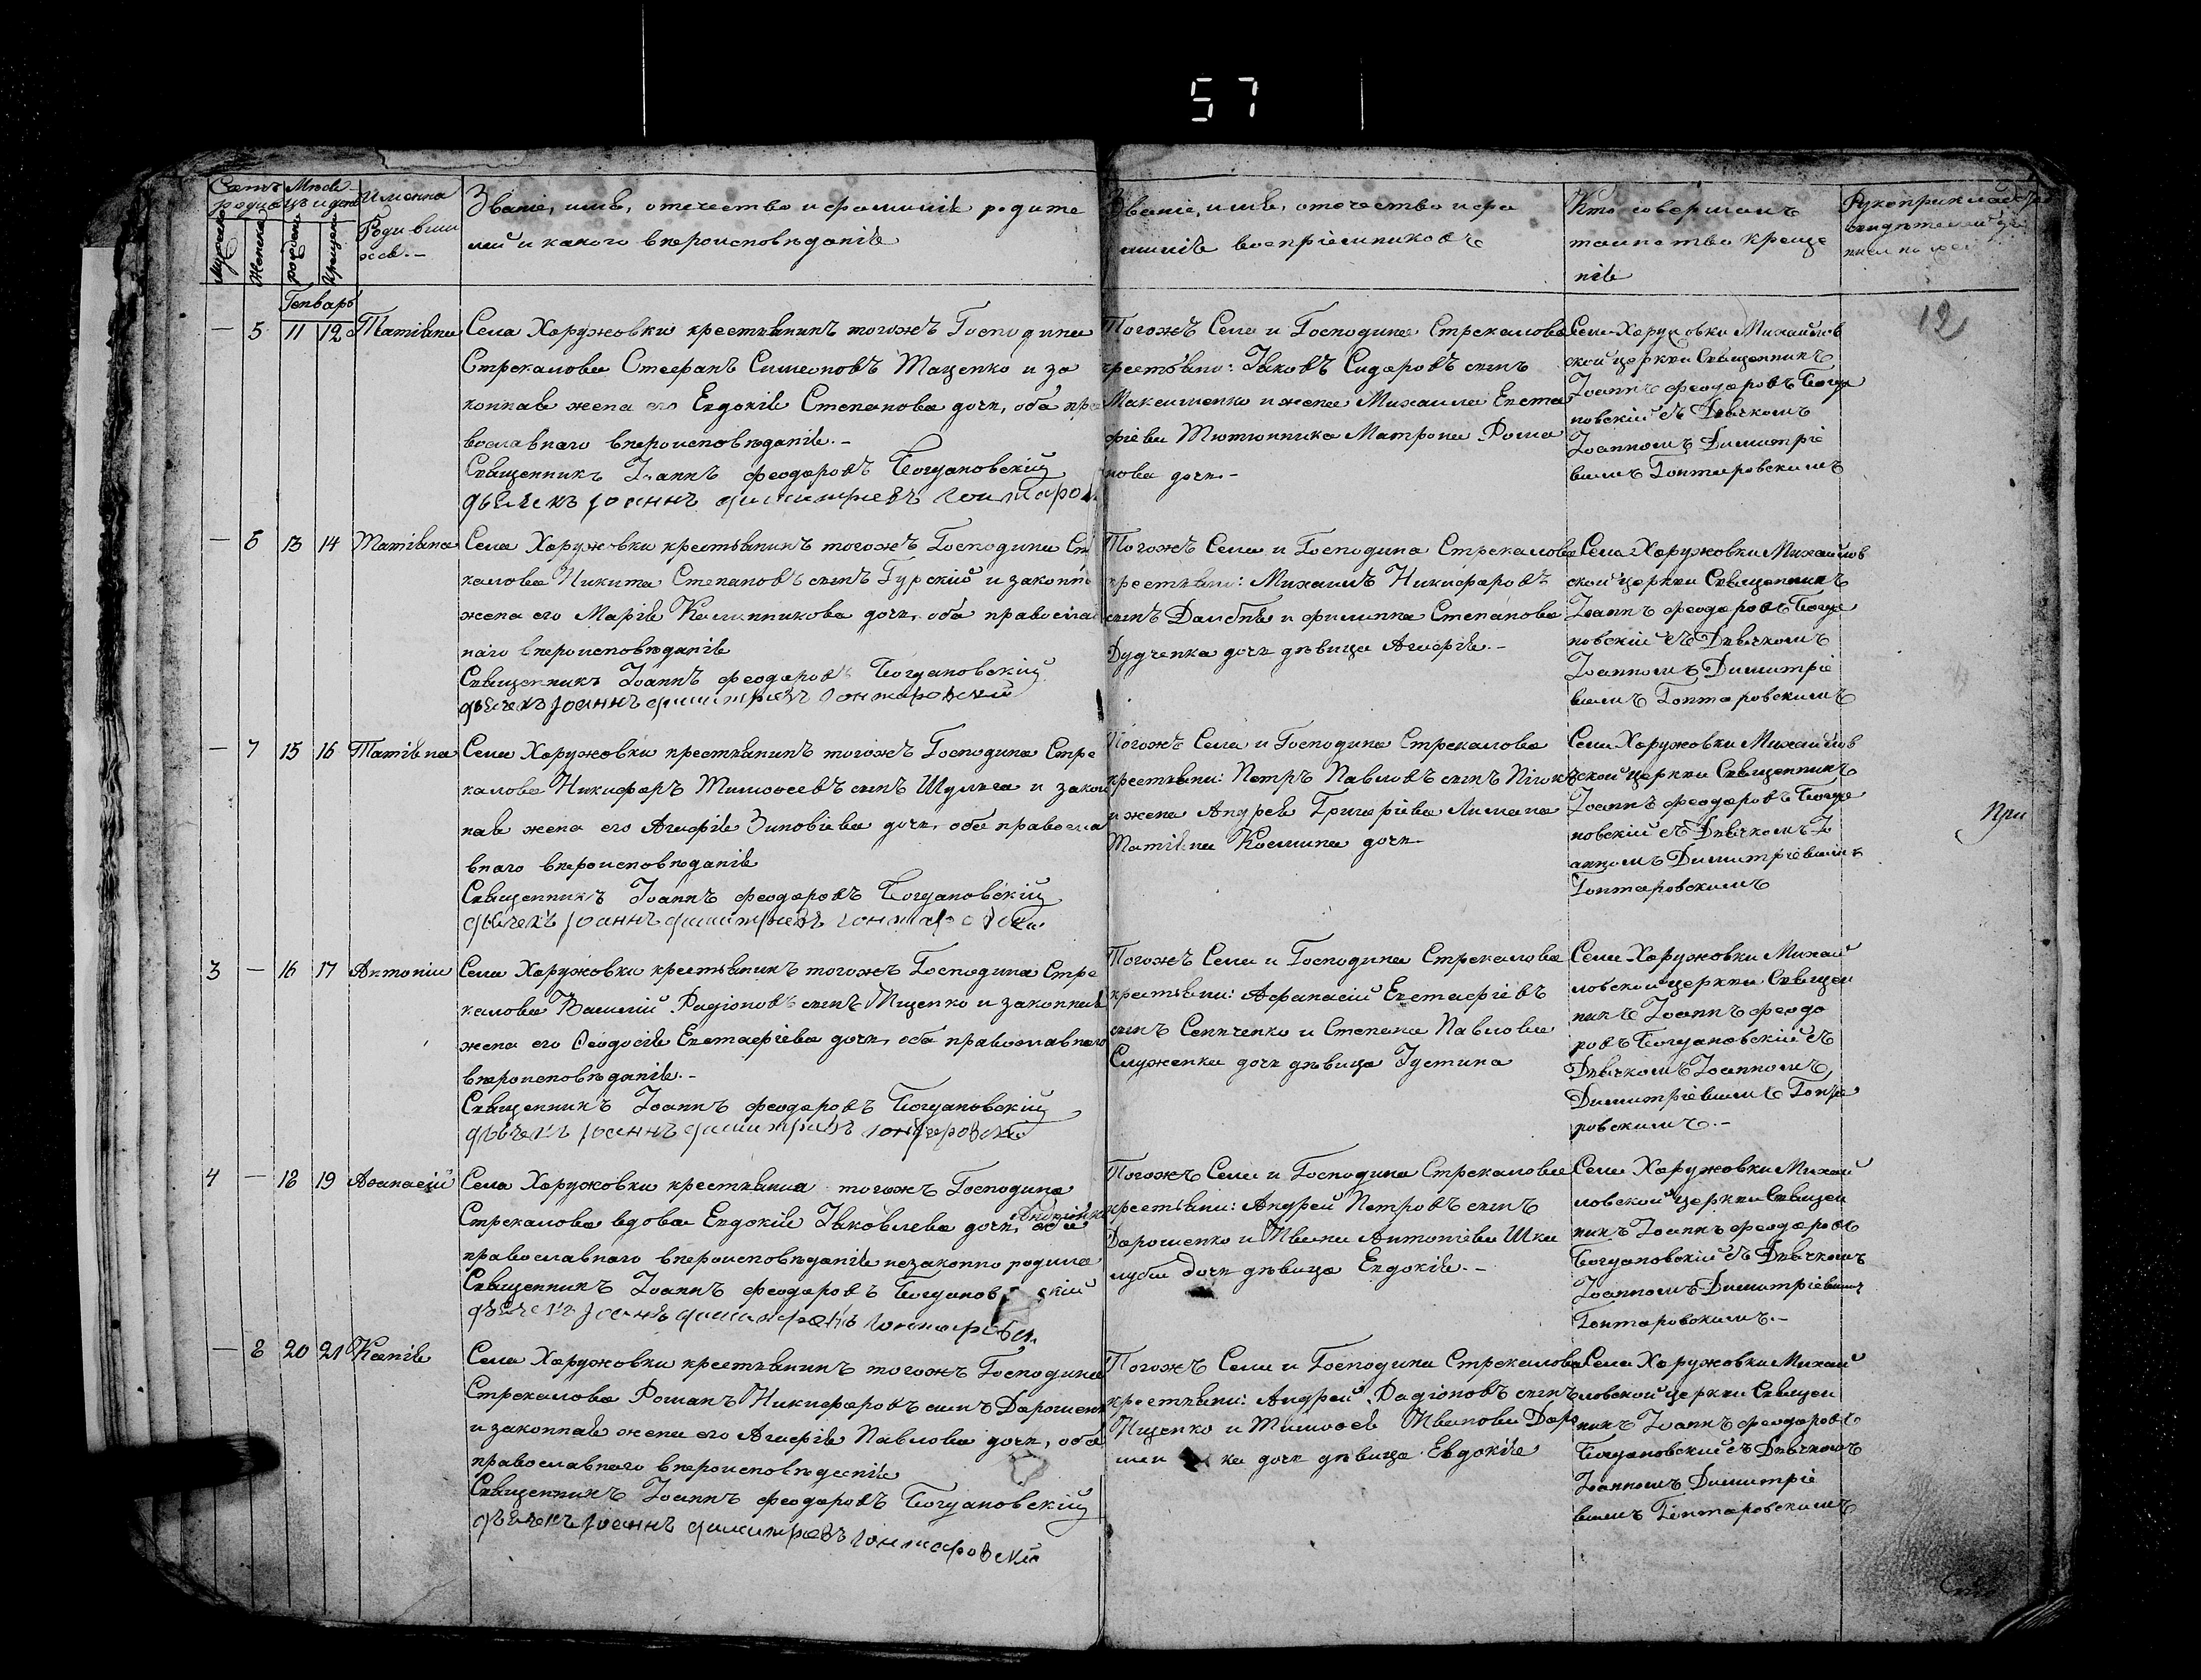 57
Счетъ родив
Мужеска
Женска
Мѣся
цъ и день
рожденія
крещенія
Имена
Родивши
хся.-
Званіе, имя, отечество и фамилія родите
лей и какого вѣроисповѣданія
Званіе, имя, отечество и фа
милія воспріемниковъ
Кто совершалъ
таинство креще
нія
Генварь
12
— 5 11 12 Татіана
Села Харужовки крестянинъ тогожъ Господина
Стрекалова Стефанъ Симеоновъ Маценко и за
конная жена его Евдокія Степанова дочь, оба пра
вославнаго вѣроисповѣданія.-
Священникъ Іоаннъ Феодоровъ Богдановскій
дьячекъ Іоаннъ Димитріевъ
Тогожъ Села и Господина Стрекалова
крестьяни: Іяковъ Сидоровъ сынъ
Максименко и жена Михаила Евста
фіева Тютюнника Матрона Рома
нова дочь.-
Села Харужовки Михайлов
ской церкви Священникъ
Іоаннъ Феодоровъ Богда
новскій съ Дьячкомъ
Іоанномъ Димитріе
вымъ Гонтаровскимъ
— 6 13 14 Татіана
Села Харужовки крестянинъ тогожъ Господина Ст
калова Никита Степановъ сынъ Гурскій и законн
жена его Марія Калинникова дочь, оба правосла
наго вѣроисповѣданія
Священникъ Іоаннъ Феодоровъ Богдановскій
дьячекъ Іоаннъ Димитріевъ Гонтаровскій
Тогожъ Села и Господина Стрекалова
крестьяни: Михаилъ Никифоровъ
сынъ и Филиппа Степанова
Дудченка дочь дѣвица Агафія.-
Села Харужовки Михайлов
ской церкви Священникъ
Іоаннъ Феодоровъ Богда
новскій съ Дьячкомъ
Іоанномъ Димитріе
вымъ Гонтаровскимъ
— 7 15 16 Татіана
Села Харужовки крестянинъ тогожъ Господина Стре
калова Никифоръ Тимоѳеевъ сынъ Шуляга и закон
ная жена его Агафія Зиновіева дочь, оба правосла
внаго вѣроисповѣданія
Священникъ Іоаннъ Феодоровъ Богдановскій
дьячекъ Іоаннъ Димитріевъ
Тогожъ Села и Господина Стрекалова
крестьяни: Петръ Павловъ сынъ
и жена Андрея Григоріева Лимана
Татіана Космина дочь
Села Харужовки Михайлов
ской церкви Священникъ
Іоаннъ Феодоровъ Богда
новскій съ Дьячкомъ Іо
анномъ Димитріевымъ
Гонтаровскимъ
При
3 — 16 17 Антоній
Села Харужовки крестьянинъ тогожъ Господина Стре
калова Василій Радіоновъ сынъ Ищенко и законная
жена его Ѳеодосія Евстафіева дочь, оба православнаго
вѣроисповѣданія.-
Священникъ Іоаннъ Феодоровъ Богдановскій
дьячекъ Іоаннъ Димитріевъ
Тогожъ Села и Господина Стрекалова
крестьяни: Афанасій Евстафіевъ
сынъ Сенченко и Степана Павлова
Служенка дочь дѣвица Іустина
Села Харужовки Михай
ловской церкви Священ
никъ Іоаннъ Феодо
ровъ Богдановскій съ
Дьячкомъ Іоанномъ
Димитріевымъ Гонта
ровскимъ.-
4 — 18 19 Аѳанасій
Села Харужовки крестянка тогожъ Господина
Стрекалова вдова Евдокія Іяковлева дочь,
православнаго вѣроисповѣданія незаконно родила
Священникъ Іоаннъ Феодоровъ Богдановскій
дьячекъ Іоаннъ Димитріевъ
Тогожъ Села и Господина Стрекалова
крестьяни: Андрей Петровъ сынъ
Дорошенко и Ивана Антоніева Шка
лубы дочь дѣвица Евдокія.-
Села Харужовки Михай
ловской церкви Священ
никъ Іоаннъ Феодоровъ
Богдановскій съ Дьячкомъ
Іоанномъ Димитріевымъ
Гонтаровскимъ.-
— 8 20 21 Ксенія
Села Харужовки крестянинъ тогожъ Господина
Стрекалова Романъ Никифоровъ сынъ Дорошенк
и законная жена его Агафія Павлова дочь, оба
православнаго вѣроисповѣданія
Священникъ Іоаннъ Феодоровъ Богдановскій
дьячекъ Іоаннъ Димитріевъ Гонтаровскій
Тогожъ Села и Господина Стрекалова
крестьяни: Андрей Радіоновъ сынъ
Ищенко и Тимоѳея Иванова Доро
шен ка дочь дѣвица Евдокія
Села Харужовки Михай
ловской церкви Священ
никъ Іоаннъ Феодоровъ
Богдановскій съ Дьячкомъ
Іоанномъ Димитріе
вымъ Гонтаровскимъ